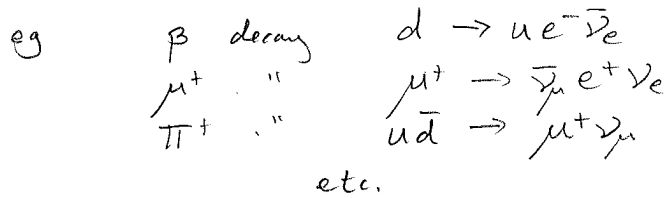 eg β decay d → u e⁻ ν̄ₑ
μ⁺ " μ⁺ → ν̄_μ e⁺ νₑ
π⁺ " u d̄ → μ⁺ ν_μ
etc.